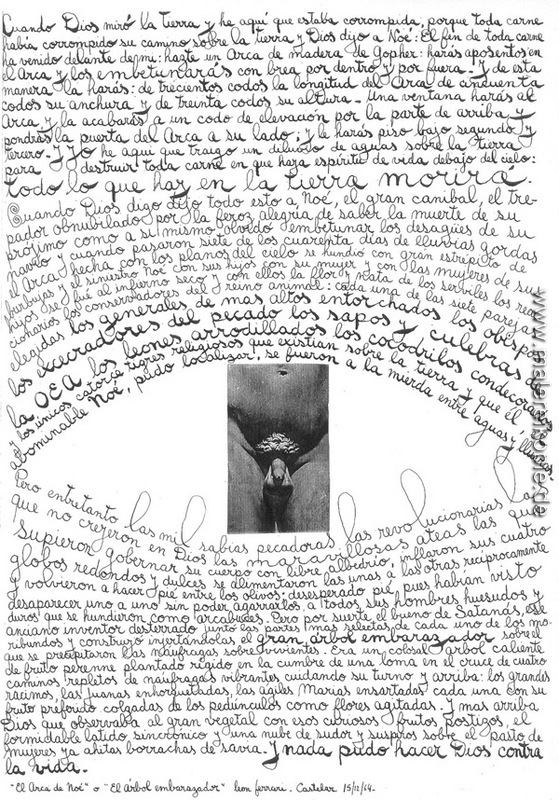 Cuando Dios miró la tierra y he aquí que estaba corrompida, porque toda carne
había corrompido su camino sobre la tierra y Dios dijo a Noé: El fin de toda carne
ha venido delante de mi: hazte un Arca de madera de Gopher: harás aposentos en
el Arca y los embetunarás con brea por dentro y por fuera. Y de esta
manera la harás: de trecientos codos la longitud del Arca de cincuenta
codos su anchura y de treinta codos su altura. Una ventana harás al
Arca y la acabarás a un codo de elevación por la parte de arriba y
pondrás la puerta del Arca a su lado; y le harás piso bajo segundo y
tercero. Y Yo he aquí que traigo un diluvio de aguas sobre la tierra
para destruir toda carne en que haya espíritu de vida debajo del cielo:
todo lo que hay en la tierra morirá.
Cuando Dios digo dijo todo esto a Noé, el gran canibal, el tre-
pador obnubilado por la feroz alegría de saber la muerte de su
prójimo como a si mismo olvidó embetunar los desagües de su
navío y cuando pasaron siete de los cuarenta días de lluvias gordas
el Arca hecha con los planos del cielo se hundió con gran estrépito de
burbujas y el siniestro Noé con sus hijos con su mujer y con las mujeres de sus
hijos se fué al infierno seco y con ellos la flor y nata de los serviles los reac
cionarios los conservadores del reino animal: cada una de las siete parejas
elegidas los generales de mas altos entorchados los obispos
los execradores del pecado los sapos y culebras de
la OEA los leones arrodillados los cocodrilos condecorados
y los únicos catorce tigres religiosos que existían sobre la tierra y que él
abominable Noé, pudo localizar, se fueron a la mierda entre aguas y lluvias
Pero entretanto las mil sabias pecadoras las revolucionarias las
que no creyeron en Dios las maravillosas ateas las que
supieron gobernar su cuerpo con libre albedrío, inflaron sus cuatro
globos redondos y dulces se alimentaron las unas a las otras recíprocamente
y volvieron a hacer pié entre los olivos: desesperado pié pues habían visto
desaparecer uno a uno sin poder agarrarlos, a todos sus hombres huesudos y
duros que se hundieron como arcabuces. Pero por suerte el bueno de Satanás, ese
anciano inventor desterrado juntó las partes mas selectas de cada uno de los mo-
ribundos y construyó injertándolas el gran árbol embarazador sobre el
que se precipitaron las náufragas sobrevivientes. Era un colosal árbol caliente
de fruto perenne plantado rígido en la cumbre de una loma en el cruce de cuatro
caminos repletos de náufragas vibrantes cuidando su turno y arriba: los grandes
racimos, las Juanas enhorquetadas, las ágiles Marias ensartadas cada una con su
fruto preferido colgadas de los pedúnculos como flores agitadas. Y mas arriba
Dios que observaba al gran vegetal con esos curiosos frutos postizos, el
formidable latido sincrónico y una nube de sudor y suspiros sobre el pasto de
mujeres ya ahitas borrachas de savia. Y nada pudo hacer Dios contra
la vida.
"El Arca de Noé" o "El Árbol embarazador" leon ferrari. Castelar 15/12/64.